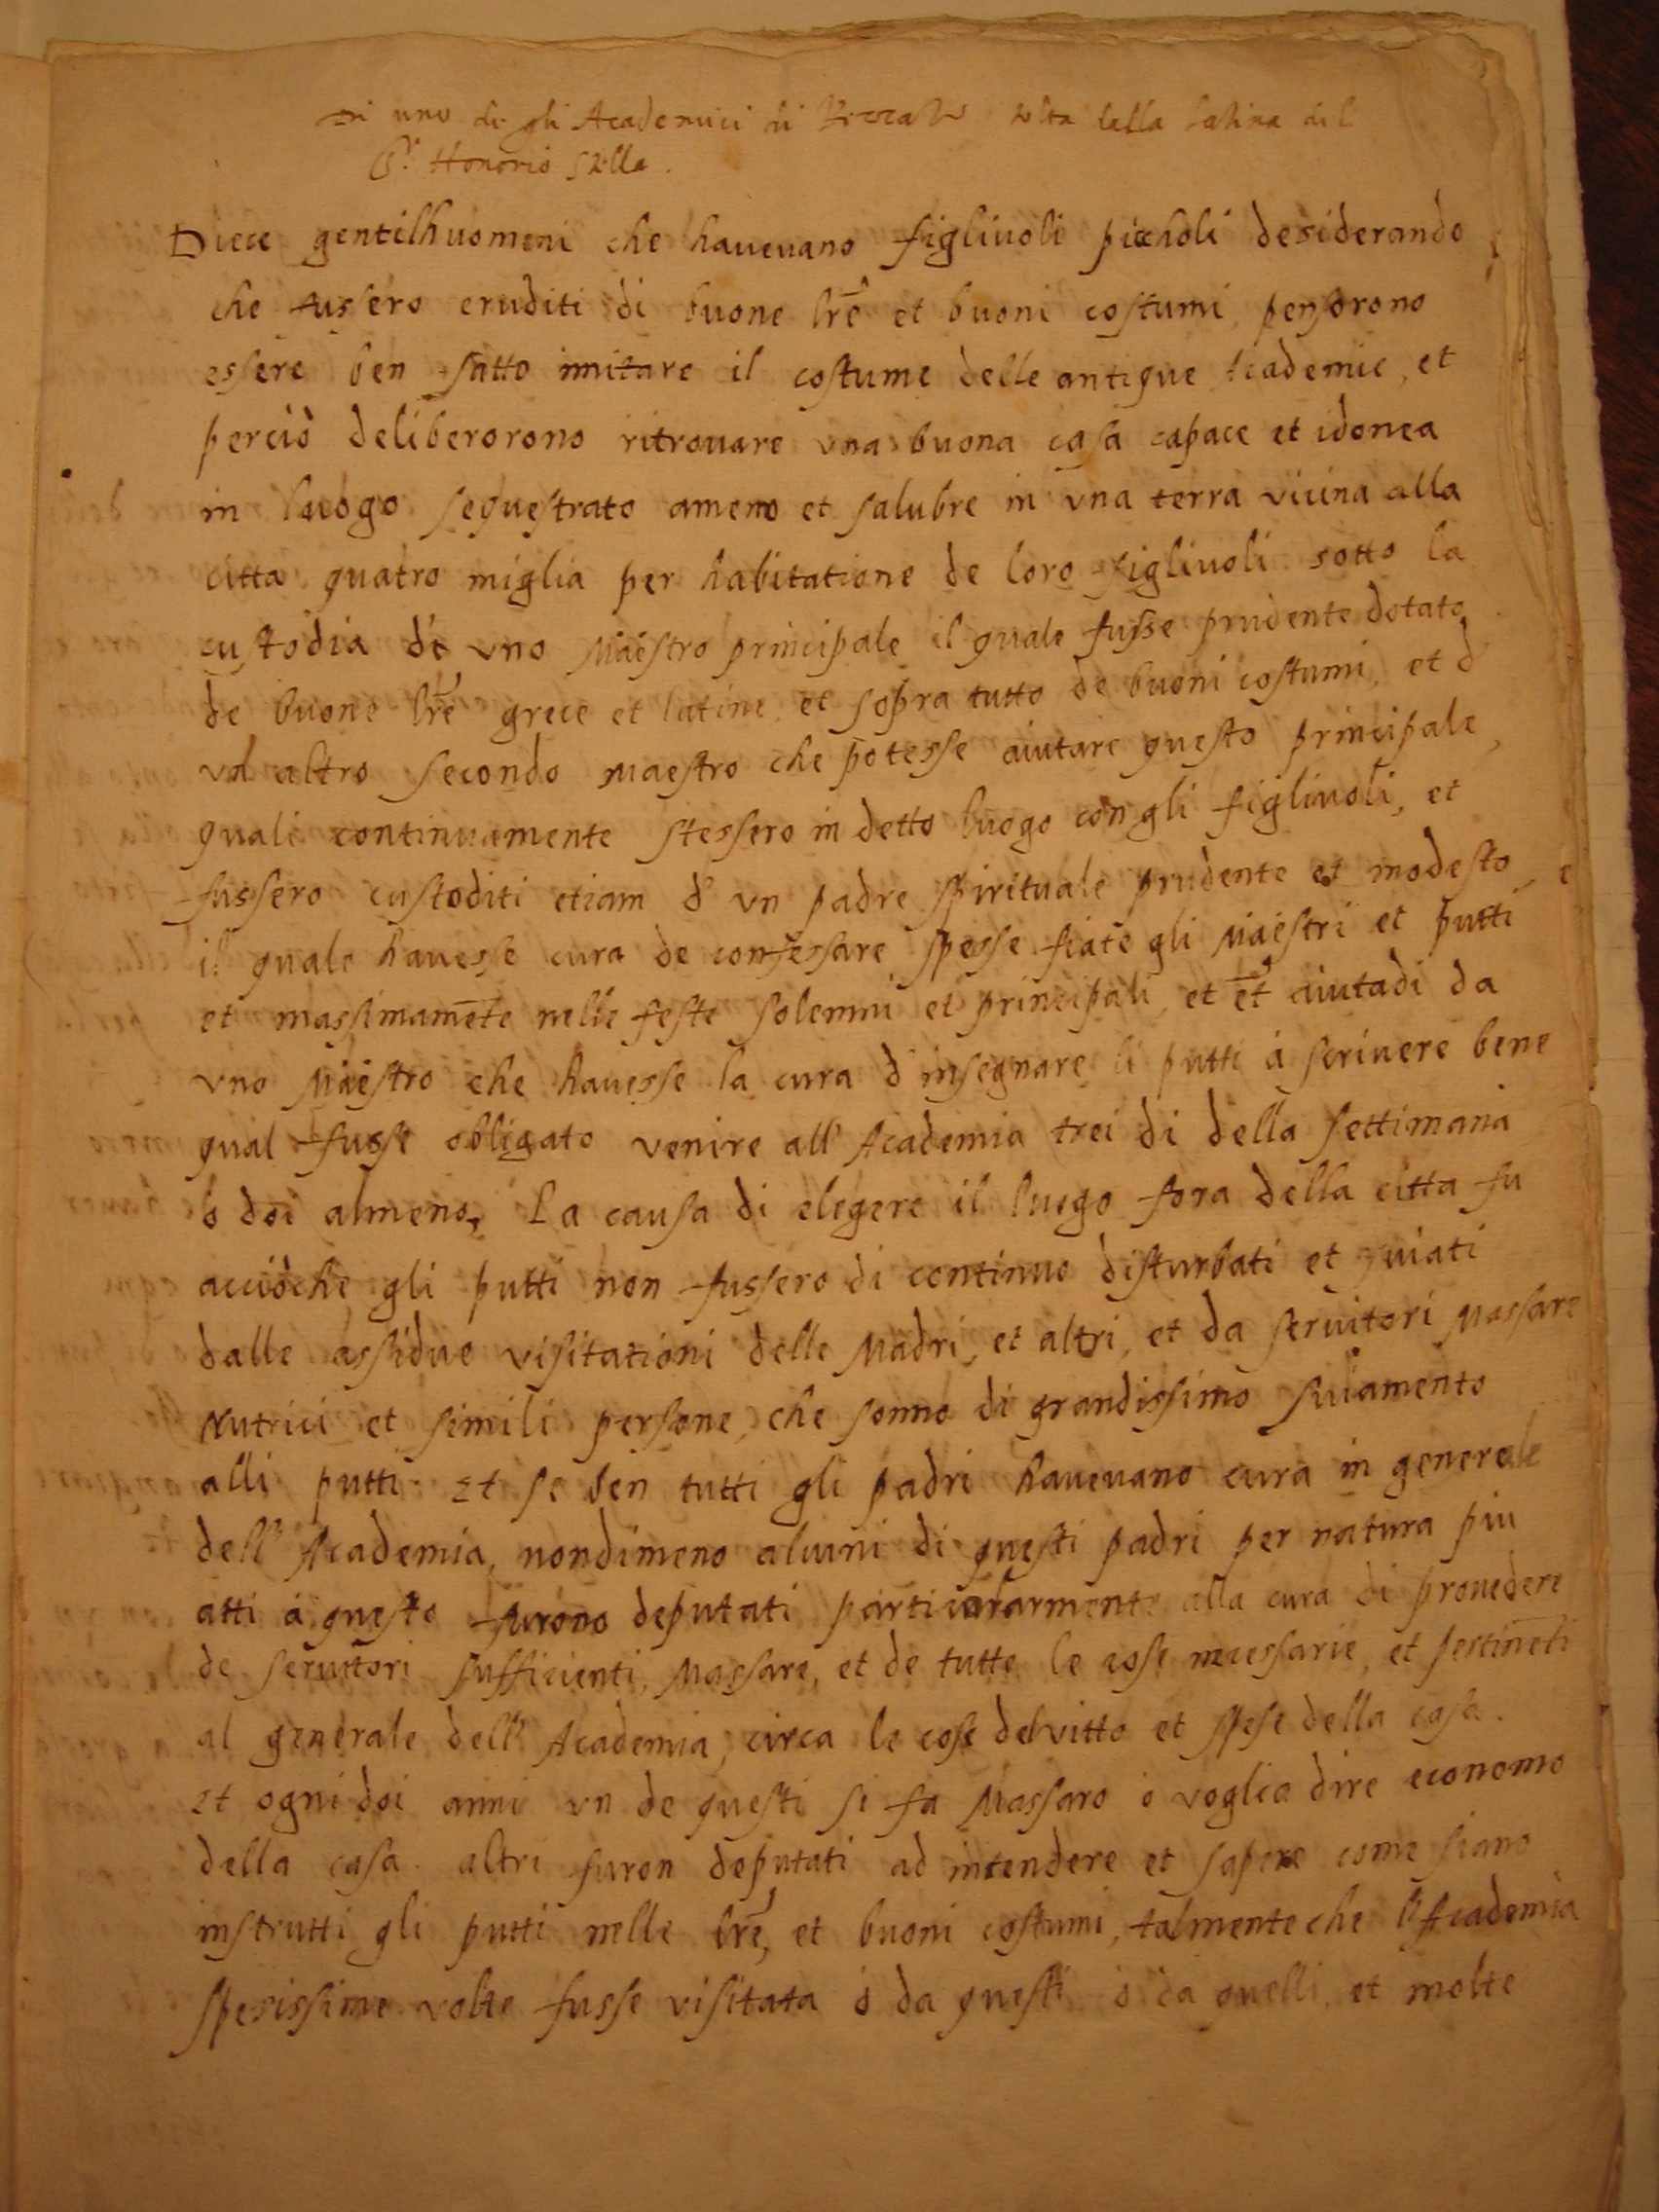 di uno de gli Academici di tolta dalla latina del
S.r Honorio Stella.
Diece gentilhuomeni che havevano figliuoli piccholi desiderando
che fussero eruditi di buone lr̄e et buoni costumi, pensorono
essere ben fatto imitare il costume delle antique Academie, et
perciò deliberorono ritrovare una buona casa capace et idonea
in luogo sequestrato ameno et salubre in una terra vicina alla
citta quatro miglia per habitatione de loro figliuoli sotto la
custodia di uno Maestro principale il quale fusse prudente dotato
de buone lr̄e grece et latine, et sopra tutto de buoni costumi, et d
un altro secondo maestro che potesse aiutare questo principale,
quali continuamente stessero in detto luogo con gli figliuoli, et
fussero custoditi etiam d' un padre spirituale prudente et modesto,
il quale havesse cura de confessare spesse fiate gli Maestri et putti
et massimamēte nelle feste solenni et principali, et et̄ aiutadi da
uno Maestro che havesse la cura d' insegnare li putti à scrivere bene
qual fusse obligato venire all' Academia trei di della settimana
ò doi almeno. La causa di elegere il luogo fora della citta fu
acciòche gli putti non fussero di continuo disturbati et sviati
dalle assidue visitationi delle Madri, et altri, et da servitori Massare
Nutrici et simili persone, che sonno di grandissimo sviamento
alli putti. Et se ben tutti gli padri havevano cura in generale
dell' Academia, nondimeno alcuni di questi padri per natura piu
atti à questo furono deputati particularmente alla cura di provedere
de servitori sufficienti, Massare, et de tutte le cose necessarie, et pertinēti
al generale dell' Academia, circa le cose del vitto et spese della casa.
Et ogni doi anni un de questi si fa Massaro ò voglio dire economo
della casa. altri furon deputati ad intendere et sapere come siano
instrutti gli putti nelle lr̄e, et buoni costumi, talmente che l' Academia
spesissime volte fusse visitata ò da questi ò da quelli, et molte